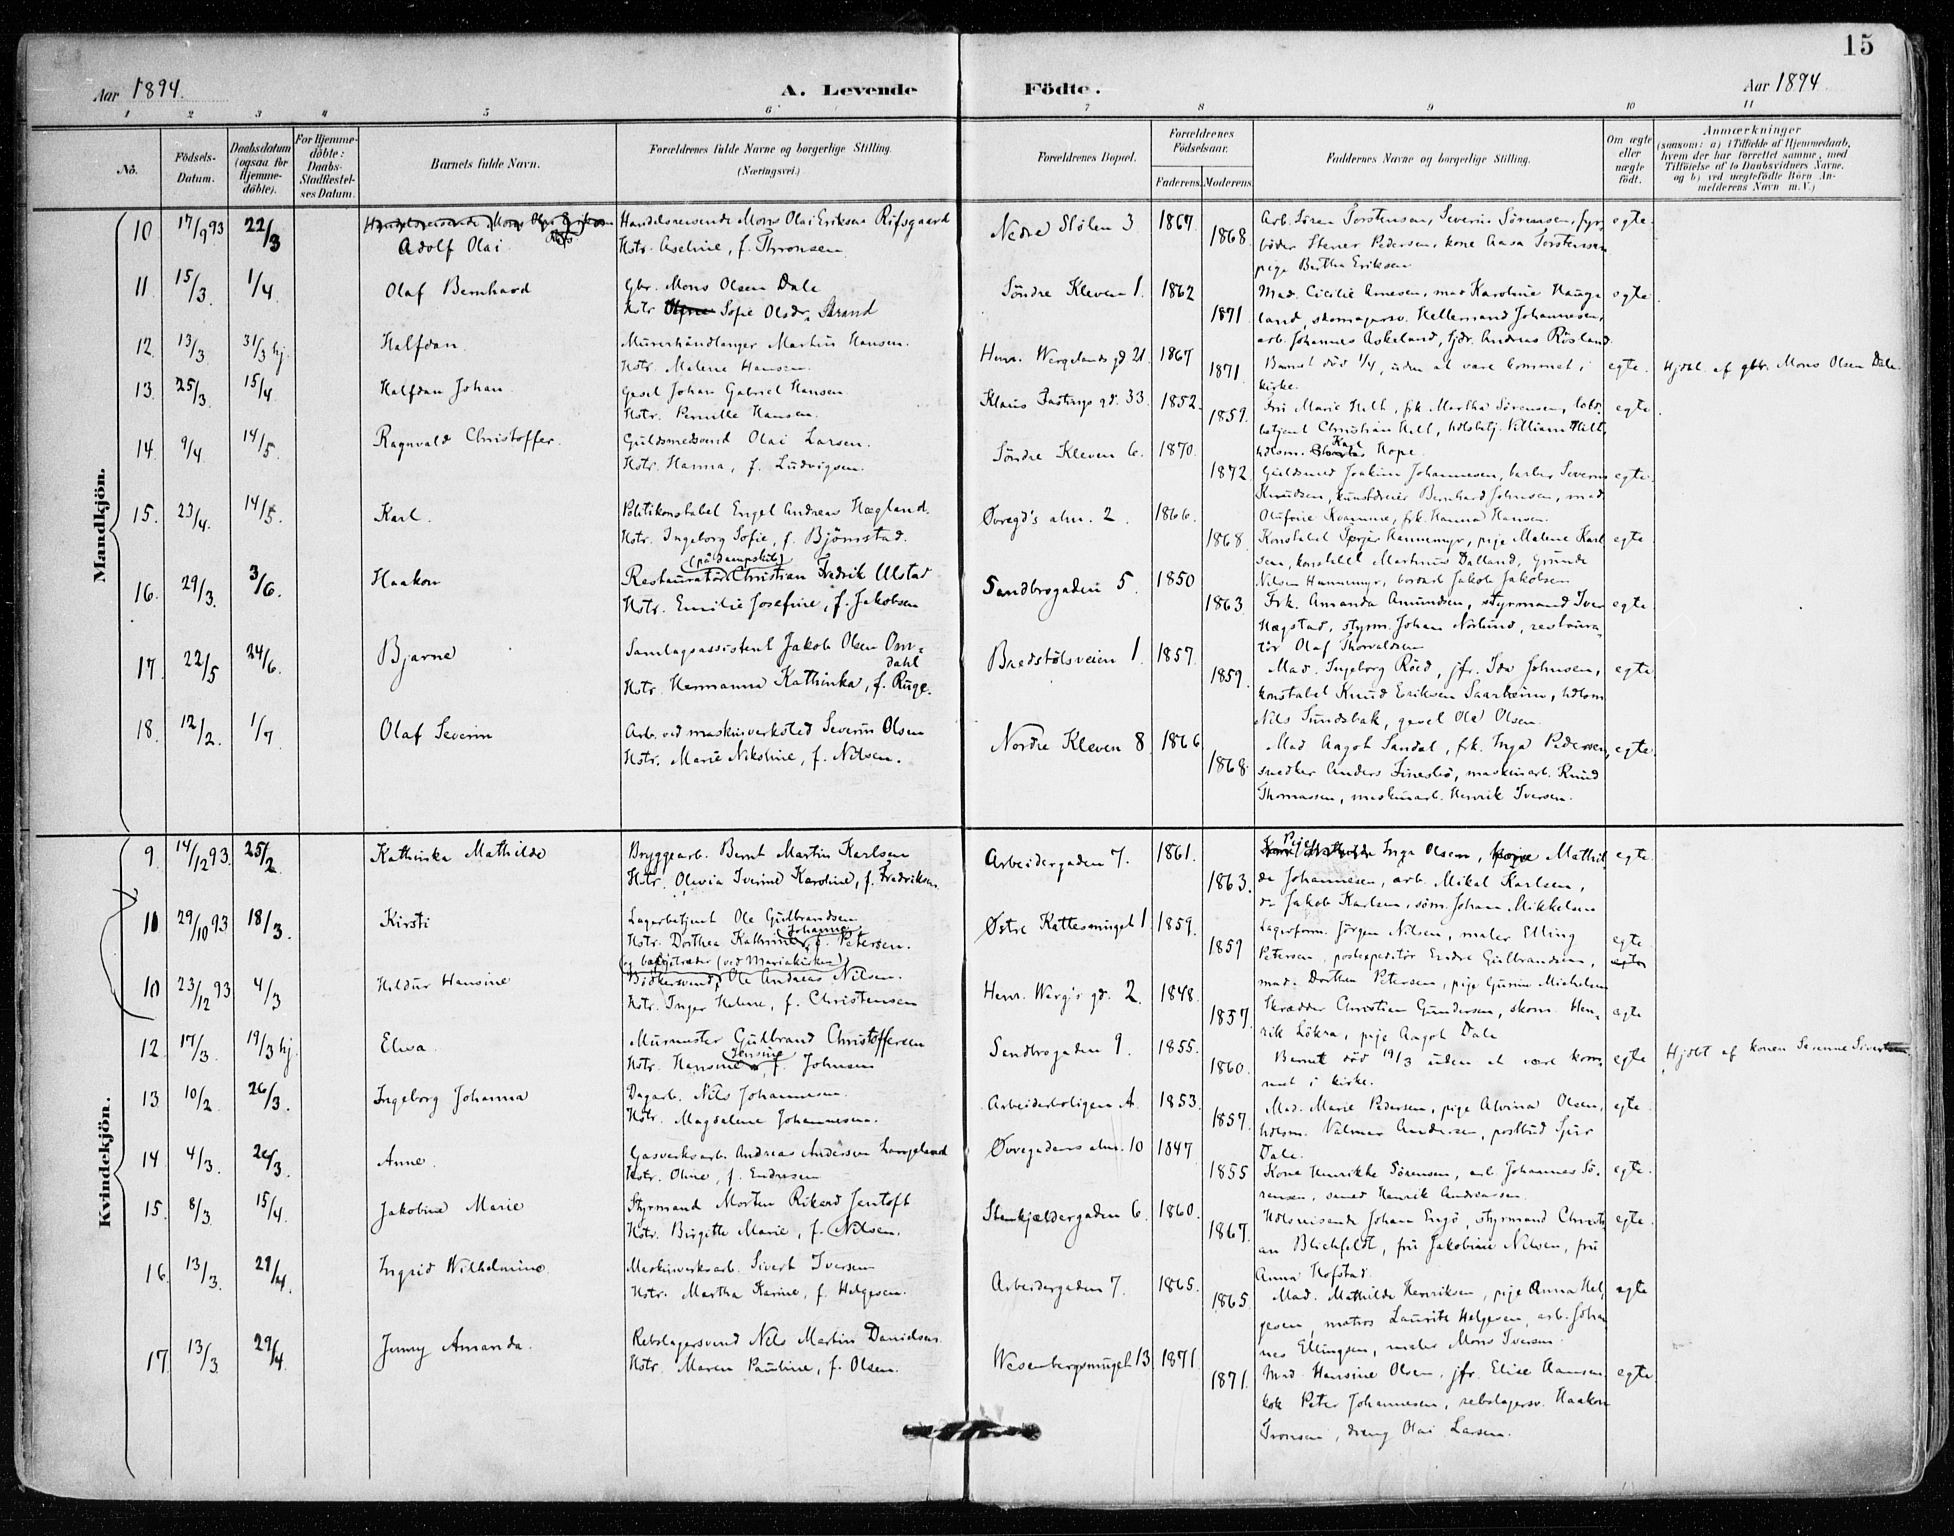 15
Aar 1894. A. Levende Födte. Aar 1894
1 2 3 4 5 6 7 8 9 10 11
No. Födsels-Datum. Daabsdatum (ogsaa for Hjemmedöbte). For Hjemmedöbte: Daabs-Stadfæstelses Datum. Barnets fulde Navn. Forældrenes fulde Navne og borgerlige Stilling. (Næringsvei.) Forældrenes Bopæl. Forældrenes Födselsaar. Faderens. Moderens. Faddernes Navne og borgerlige Stilling. Om ægte eller uægte födt. Anmærkninger (saasom: a) i Tilfælde af Hjemmedaab, hvem der har forrettet samme, med Tilföielse af to Daabsvidners Navne, og b) ved uægtefödte Börn Anmelderens Navn m. V.)
Mandkjön.
10 17/9 93 22/3 Adolf Olai Handelsreisende Mons Olai Eriksen Röfsgaard Nedre Stölen 3 1867 Arb. Sören Torstensen, Severin Sörensen, fyr- egte
Hstr. Aseline, f. Thronsen 1868 böder Stener Pedersen, kone Aasa Torstensen
pige Bertha Eriksen
11 15/3. 1/4. Olaf Bernhard Gbr. Mons Olsen Dale Söndre Kleven 1. 1862 Mad. Cicilie Arnesen, mad Karoline Hauge- egte
Hstr Sofie Olsdr. Strand 1871 land, skomagersv. Hellemand Johannesen,
arb. Johannes Askeland, tjdr. Andreas Rösland
12. 13/3 31/3 hj. Halfdan. Murerhåndlanger Martin Hansen. Henr. Wergelands gd 21. 1867 Barnet död 1/4, uden at være kommet i egte. Hjdbt. af gbr. Mons Olsen Dale.
Hstr. Malene Hansen. 1871. kirke.
13. 25/3. 15/4 Halfdan Johan. Gesel Johan Gabriel Hansen Klaus Jastrups gd. 33. 1852. Fru Marie Helt, frk Martha Sörensen, egte
Hstr. Pernille Hansen. 1859. betjent Christian Helt, hdlsbtj. Villiam Helt,
14. 9/4 14/5. Ragnvald Christoffer. Guldsmedsvend Olai Larsen. Söndre Kleven 6. 1870. hdlsm. Karl Hope.
Hstr. Hanna, f. Ludvigsen. 1872 Guldsmed Joakim Johannesen, barber Severin egte.
Knudsen, kunstdreier Bernhard Johnsen, mad
15. 23/4. 14/5. Karl. Politikonstabel Engel Andreas Hægland. Övregd's alm. 2. 1866. Olufine Kvamme, frk. Hanna Hansen.
Hstr. Ingeborg Sofie, f. Björnstad. 1868. Konstabel Hannemyr, pige Malene Karl- egte.
(på dampskib) sen, konstabel Martinus Dalland,
16. 29/3. 3/6. Haakon Restauratör Christian Fredrik Ulstad Sandbrogaden 5. 1850 Nilsen Hannemyr, Jakob Jakobsen
Hstr. Emilie Josefine, f. Jakobsen 1863 Frk. Amanda Amundsen, styrmand Iver egte.
Hægstad, styrm. Johan Nöslund, restaura-
17 22/5 24/6. Bjarne Samlagsassistent Jakob Olsen Om- Bredstölsveien 1. 1857. tör Olaf Thorvaldsen
dahl
Hstr. Hermanna Kathinka, f. Ruge. 1859. Mad. Ingeborg Röed, jfr. Ida Johnsen, egte.
konstabel Knud Eriksen Saarheim, hdlsm
18. 12/2. 1/7. Olaf Severin Arb. ved maskinverksted Severin Olsen Nordre Kleven 8 1866 Nils Sundsbak, gesel Ole Olsen.
Hstr. Marie Nikoline, f. Nilsen. 1868. Mad Aagot Sandal, frk. Inga Pedersen, egte.
snedker Anders Finesbö, maskinarb. Knud
Thomassen, maskinarb. Henrik Iversen.
Kvindekjön.
9. 14/12 93. 25/2. Kathinka Mathilde Bryggearb. Bernt Martin Karlsen Arbeidergaden 7. 1861. Pige Inga Olsen, Mathil- egte.
Hstr. Olevia Iverine Karoline, f. Fredriksen. 1863. de Johannesen, arb. Mikal Karlsen,
do Jakob Karlsen, söm. Johan Mikkelsen
11 29/10 93 18/3. Kirsti Lagerbetjent Ole Gulbrandsen Östre Kattesmuget 1 1859. Lagerform. Jörgen Nilsen, maler Elling egte
Hstr. Dorthea Kathrine Johanne, f. Petersen. 1859 Petersen, postexpeditör Endre Gulbrandsen,
(ved Mariakirken) mad. Dorthea Petersen, pige Gurine Michelsen
10 23/12 93 4/3 Hildur Hansine Bödkersvend Ole Andreas Nilsen. Henr. Werg's gd. 2. 1848.
Hstr. Inger Helene, f. Christensen 1857. Skrædder Christian Gundersen, skom. Hen- egte
rik Lökra, pige Aagot Dale
12 17/3. 19/3 hj. Elisa. Murmester Gulbrand Christoffersen Sandbrogaden 9. 1855. Barnet död 19/3 uden at være kom- egte Hjdbt af konen Severine Sivertsen.
Hstr. Hansine Jensine, f. Johnsen 1860. met i kirke.
13 10/2. 26/3. Ingeborg Johanna Dagarb. Nils Johannesen. Arbeiderboligen A. 1853. Mad. Marie Pedersen, pige Alvina Olsen, egte.
Hstr. Magdalene Johannesen. 1857. hdlsm. Valmar Andersen, postbud Sjur
14 4/3. 26/3. Anne. Gasverksarb. Andreas Andersen Langeland Övregadens alm. 10 1847 Dale.
Hstr. Oline, f. Endresen 1855 Kone Henrikke Sörensen, arb. Johannes Sö- egte.
rensen, Henrik Andreassen.
15. 8/3. 15/4. Jakobine Marie Styrmand Morten Rikard Jentoft Stenkjeldergaden 6. 1860. Hdlsreisende Johan Engö, styrmand Christi- egte.
Hstr. Birgitte Marie, f. Nilsen. 1867. an Blichfeldt, fru Jakobine Nilsen, fru
16. 13/3. 29/4. Ingrid Wilhelmine. Maskinverksarb. Sivert Iversen Arbeidergaden 7. 1865. Anna Hofstad.
Hstr. Martha Karine, f. Helgesen. 1865. Mad. Mathilde Henriksen, pige Anna Hel- egte
gesen, matros Laurits Helgesen, arb. Johan-
17. 13/3. 29/4. Jenny Amanda. Rebslagersvend Nils Martin Danielsen Wesenbergsmuget 13 1871. nes Ellingsen, maler Mons Iversen.
Hstr. Maren Pauline, f. Olsen. 1871. Mad. Hansine Olsen, jfr. Elise Hansen egte.
kok Peter Johannesen, rebslagersv. Haakon
Tronsen, dreng Olai Larsen.